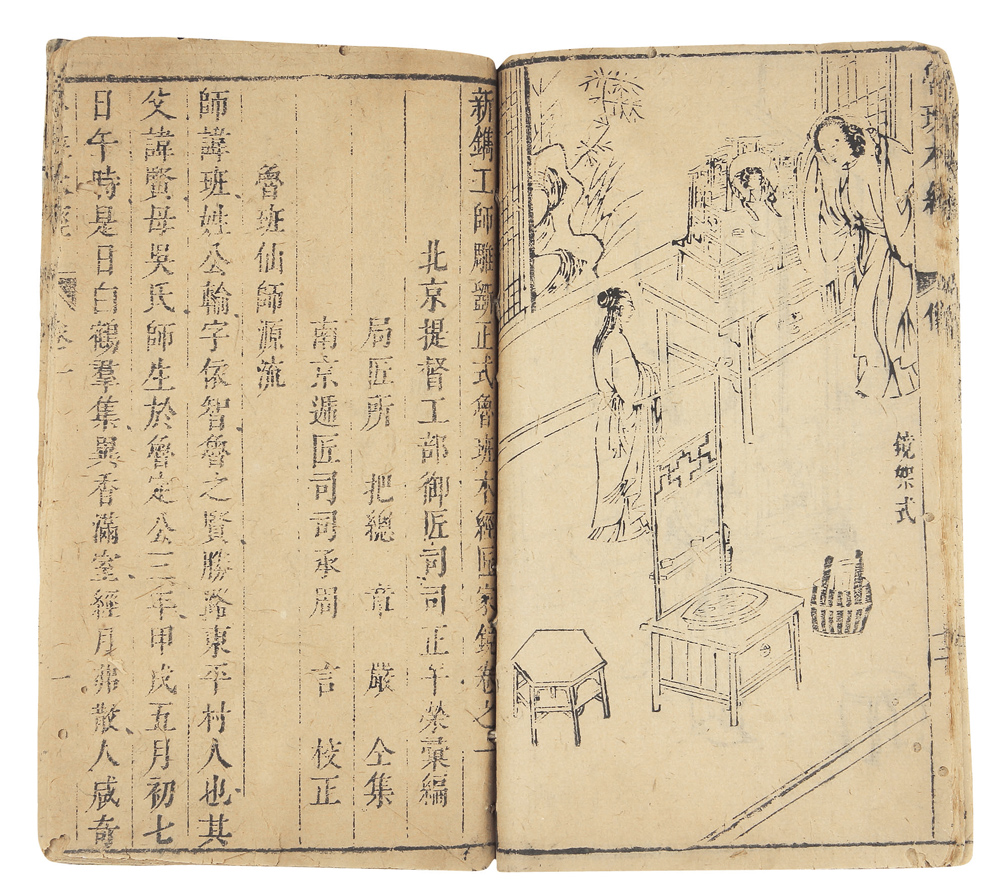 魯班木經
鏡架式
新鐫工師雕斲正式魯班木經匠家鏡卷之一
北京提督工部御匠司司正午榮彙編
局匠所 把總 章嚴 仝集
南京遞匠司司承周 言 校正
魯班仙師源流
師諱班姓公輸字依智魯之賢勝路東平村人也其
父諱賢母吳氏師生於魯定公三年甲戌五月初七
日午時是日白鶴羣集異香滿室經月弗散人咸奇
木經 卷一 一